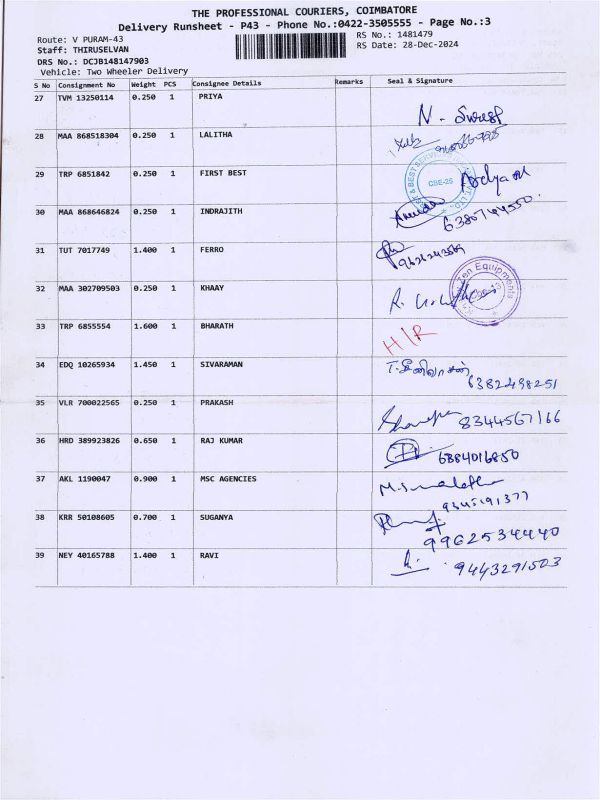 THE PROFESSIONAL COURIERS, COIMBATORE
Delivery Runsheet - P43 - Phone No.:0422-3505555 - Page No.:3
Route: V PURAM-43 RS No.: 1481479
Staff: THIRUSELVAN RS Date: 28-Dec-2024
DRS No.: DCJB148147903
Vehicle: Two Wheeler Delivery
S No Consignment No Weight PCS Consignee Details Remarks Seal & Signature
27 TVM 13250114 0.250 1 PRIYA
N. Suresh
28 MAA 868518304 0.250 1 LALITHA
29 TRP 6851842 0.250 1 FIRST BEST
CBE-25
30 MAA 868646824 0.250 1 INDRAJITH
6380744550
31 TUT 7017749 1.400 1 FERRO
32 MAA 302709503 0.250 1 KHAAY
Zen Equipments
33 TRP 6855554 1.600 1 BHARATH
H/R
34 EDQ 10265934 1.450 1 SIVARAMAN
T. சீனிவாசன்
6382498251
35 VLR 700022565 0.250 1 PRAKASH
8344567166
36 HRD 389923826 0.650 1 RAJ KUMAR
6384016850
37 AKL 1190047 0.900 1 MSC AGENCIES
9345191377
38 KRR 50108605 0.700 1 SUGANYA
9962534440
39 NEY 40165788 1.400 1 RAVI
9443291503